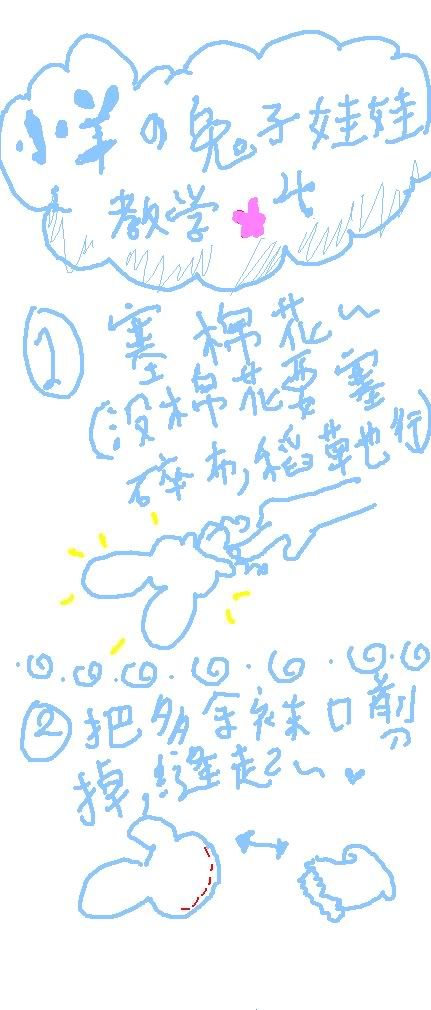 小羊の兔子娃娃
教学 4
① 塞棉花~
(没棉花要塞
碎布,稻草也行)
② 把多余袜口剪
掉,缝起2~